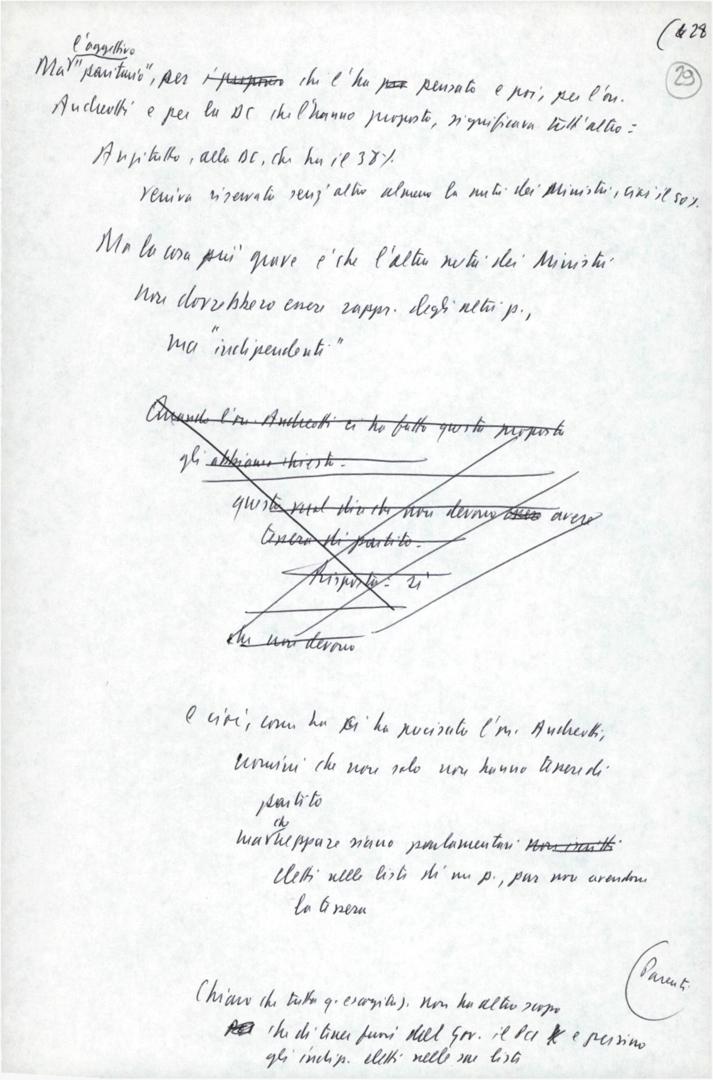 (28
29
l'aggettivo
Ma "paritario", per chi l'ha pensato e poi, per l'on.
Andreotti e per la DC che l'hanno proposto, significava tutt'altro:
Anzitutto, alla DC, che ha il 38%
veniva riservato senz'altro almeno la metà dei Ministri, cioè il 50%.
Ma la cosa più grave è che l'altra metà dei Ministri
non dovrebbero essere rappr. degli altri p.,
ma "indipendenti"
Quando l'on. Andreotti ci ha fatto questa proposta
gli abbiamo chiesto.
questo vuol dire che non devono avere
tessera di partito.
Risposta: sì
che non devono
e cioè, come ha ci ha precisato l'on. Andreotti,
uomini che non solo non hanno tessere di
partito
che
ma neppure siano parlamentari non iscritti
eletti nelle liste di un p., pur non avendone
la tessera
(Parentesi
Chiaro che tutta q. escogitaz. non ha altro scopo
che di tener fuori dal Gov. il PCI e persino
gli indip. eletti nelle sue liste